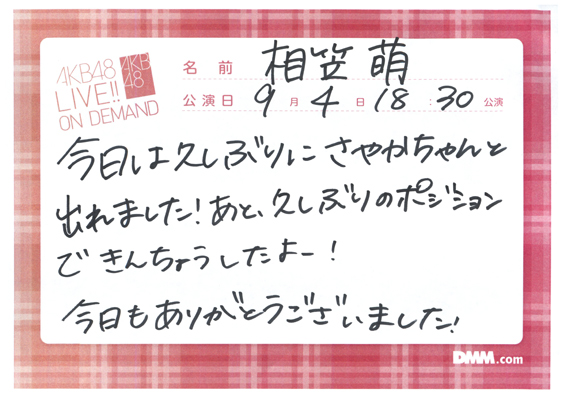 AKB48
LIVE!!
ON DEMAND
AKB
48
名前 相笠 萌
公演日 9月4日 18:30公演
今日は久しぶりにさやかちゃんと
出れました!あと、久しぶりのポジション
できんちょうしたよー!
今日もありがとうございました!
DMM.com